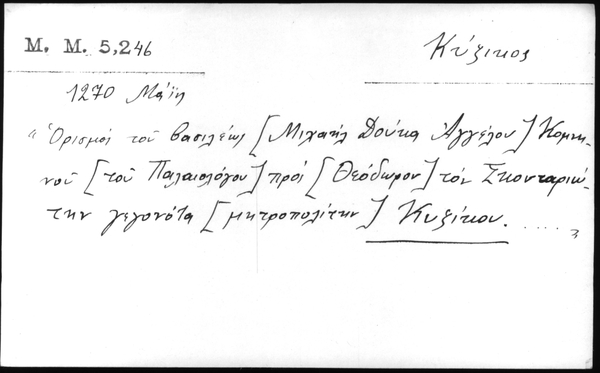 M. M. 5,246
Κύζικος
1270 Μάϊῳ
"Ὁρισμὸς τοῦ βασιλέως [Μιχαὴλ Δούκα Ἀγγέλου] Κομνη-
νοῦ [τοῦ Παλαιολόγου] πρὸς [Θεόδωρον] τὸν Σκουταριώ-
την γεγονότα [μητροπολίτην] Κυζίκου. ....."